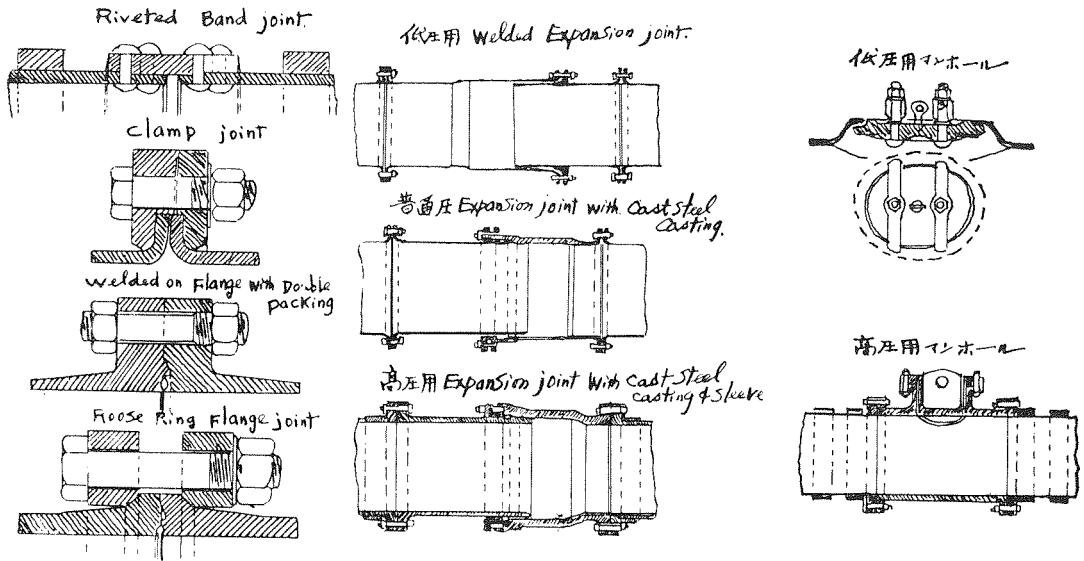 Riveted Band joint.
clamp joint
Welded on Flange with Double
packing
Loose Ring Flange joint
低圧用 Welded Expansion joint.
普通圧 Expansion joint with Cast Steel
Casting.
高圧用 Expansion joint With Cast Steel
casting & Sleeve
低圧用マンホール
高圧用マンホール